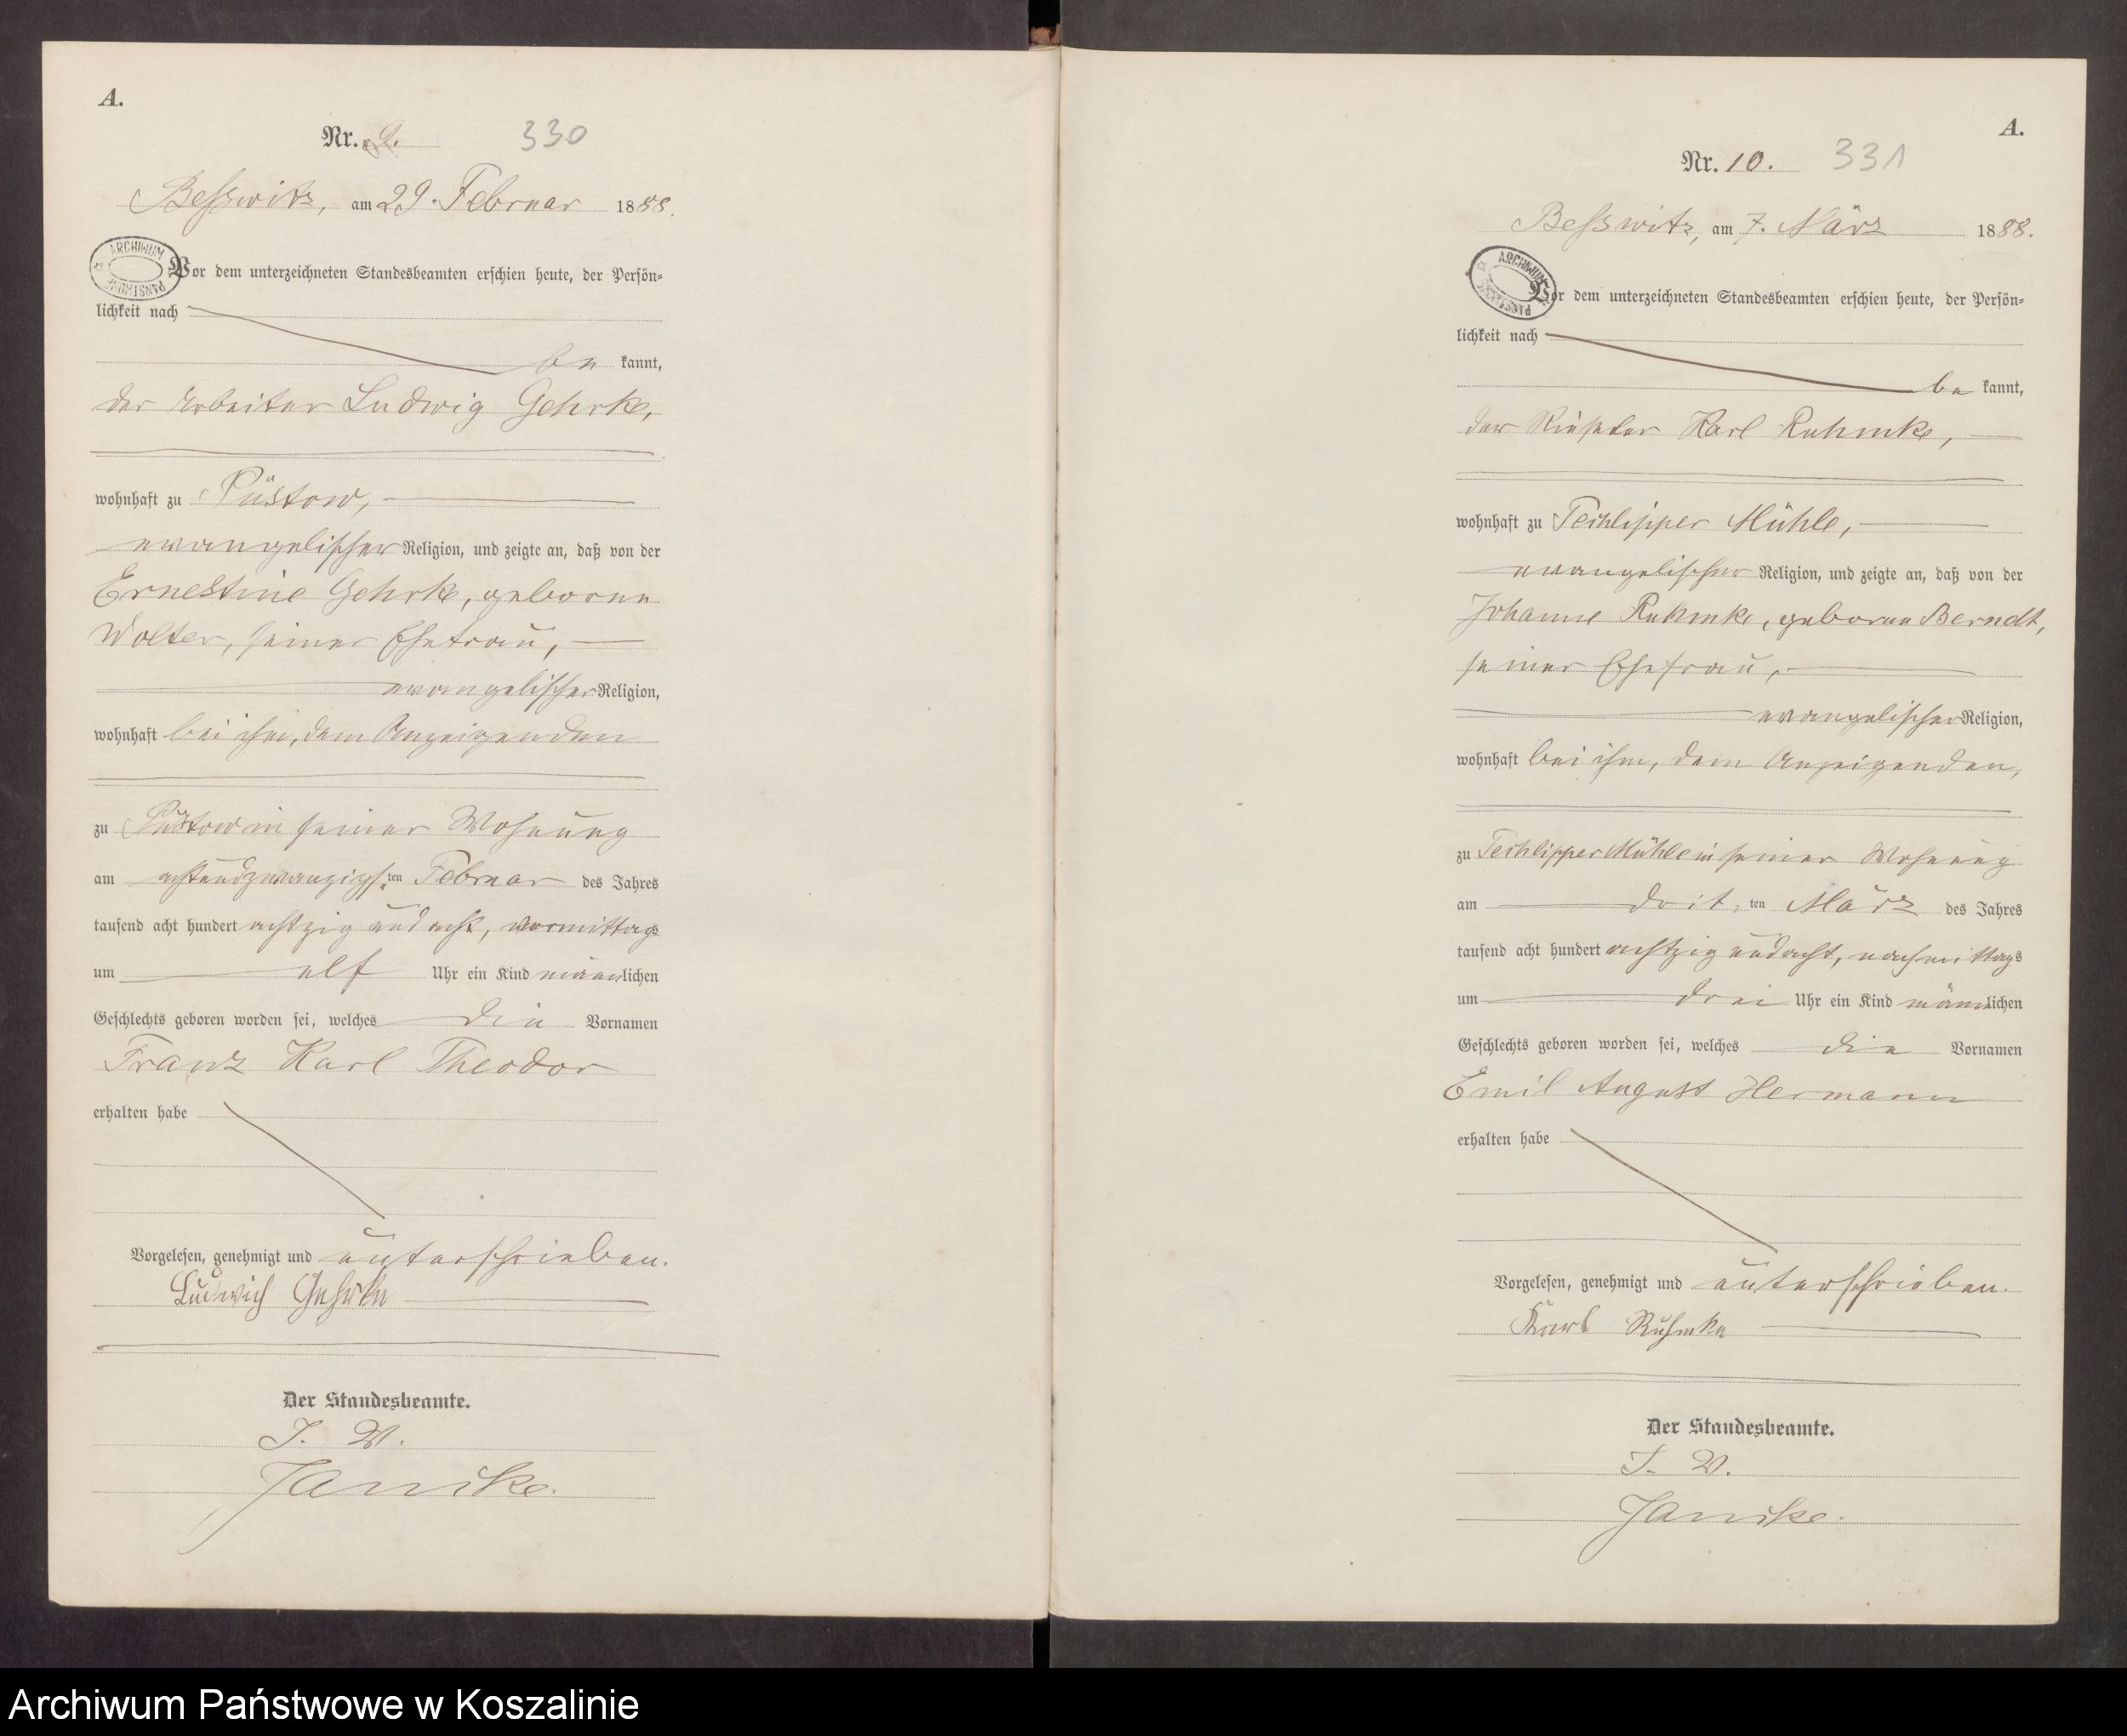 A.
Nr. 9. 330
Besswitz, am 29. Februar 1888.
ARCHIWUM PAŃSTWOWE
Vor dem unterzeichneten Standesbeamten erschien heute, der Persön-
lichkeit nach
be kannt,
der Arbeiter Ludwig Gehrke,
wohnhaft zu Püstow,
evangelischer Religion, und zeigte an, daß von der
Ernestine Gehrke, geborene
Wolter, seiner Ehefrau,
evangelischer Religion,
wohnhaft bei ihm, dem Anzeigenden
zu Püstow in seiner Wohnung
am achtundzwanzigsten Februar des Jahres
tausend acht hundert achtzig und acht, vormittags
um elf Uhr ein Kind männlichen
Geschlechts geboren worden sei, welches die Vornamen
Franz Karl Theodor
erhalten habe
Vorgelesen, genehmigt und unterschrieben.
Ludwich Gehrke
Der Standesbeamte.
J. V.
Janike.
A.
Nr. 10. 331
Besswitz, am 7. März 1888.
ARCHIWUM PAŃSTWOWE
Vor dem unterzeichneten Standesbeamten erschien heute, der Persön-
lichkeit nach
be kannt,
der Rieseler Karl Ruhmke,
wohnhaft zu Techlipper Mühle,
evangelischer Religion, und zeigte an, daß von der
Johanne Ruhmke, geborene Berndt,
seiner Ehefrau,
evangelischer Religion,
wohnhaft bei ihm, dem Anzeigenden,
zu Techlipper Mühle in seiner Wohnung
am dritten März des Jahres
tausend acht hundert achtzig und acht, nachmittags
um drei Uhr ein Kind männlichen
Geschlechts geboren worden sei, welches die Vornamen
Emil August Hermann
erhalten habe
Vorgelesen, genehmigt und unterschrieben.
Karl Ruhmke
Der Standesbeamte.
J. V.
Janike.
Archiwum Państwowe w Koszalinie